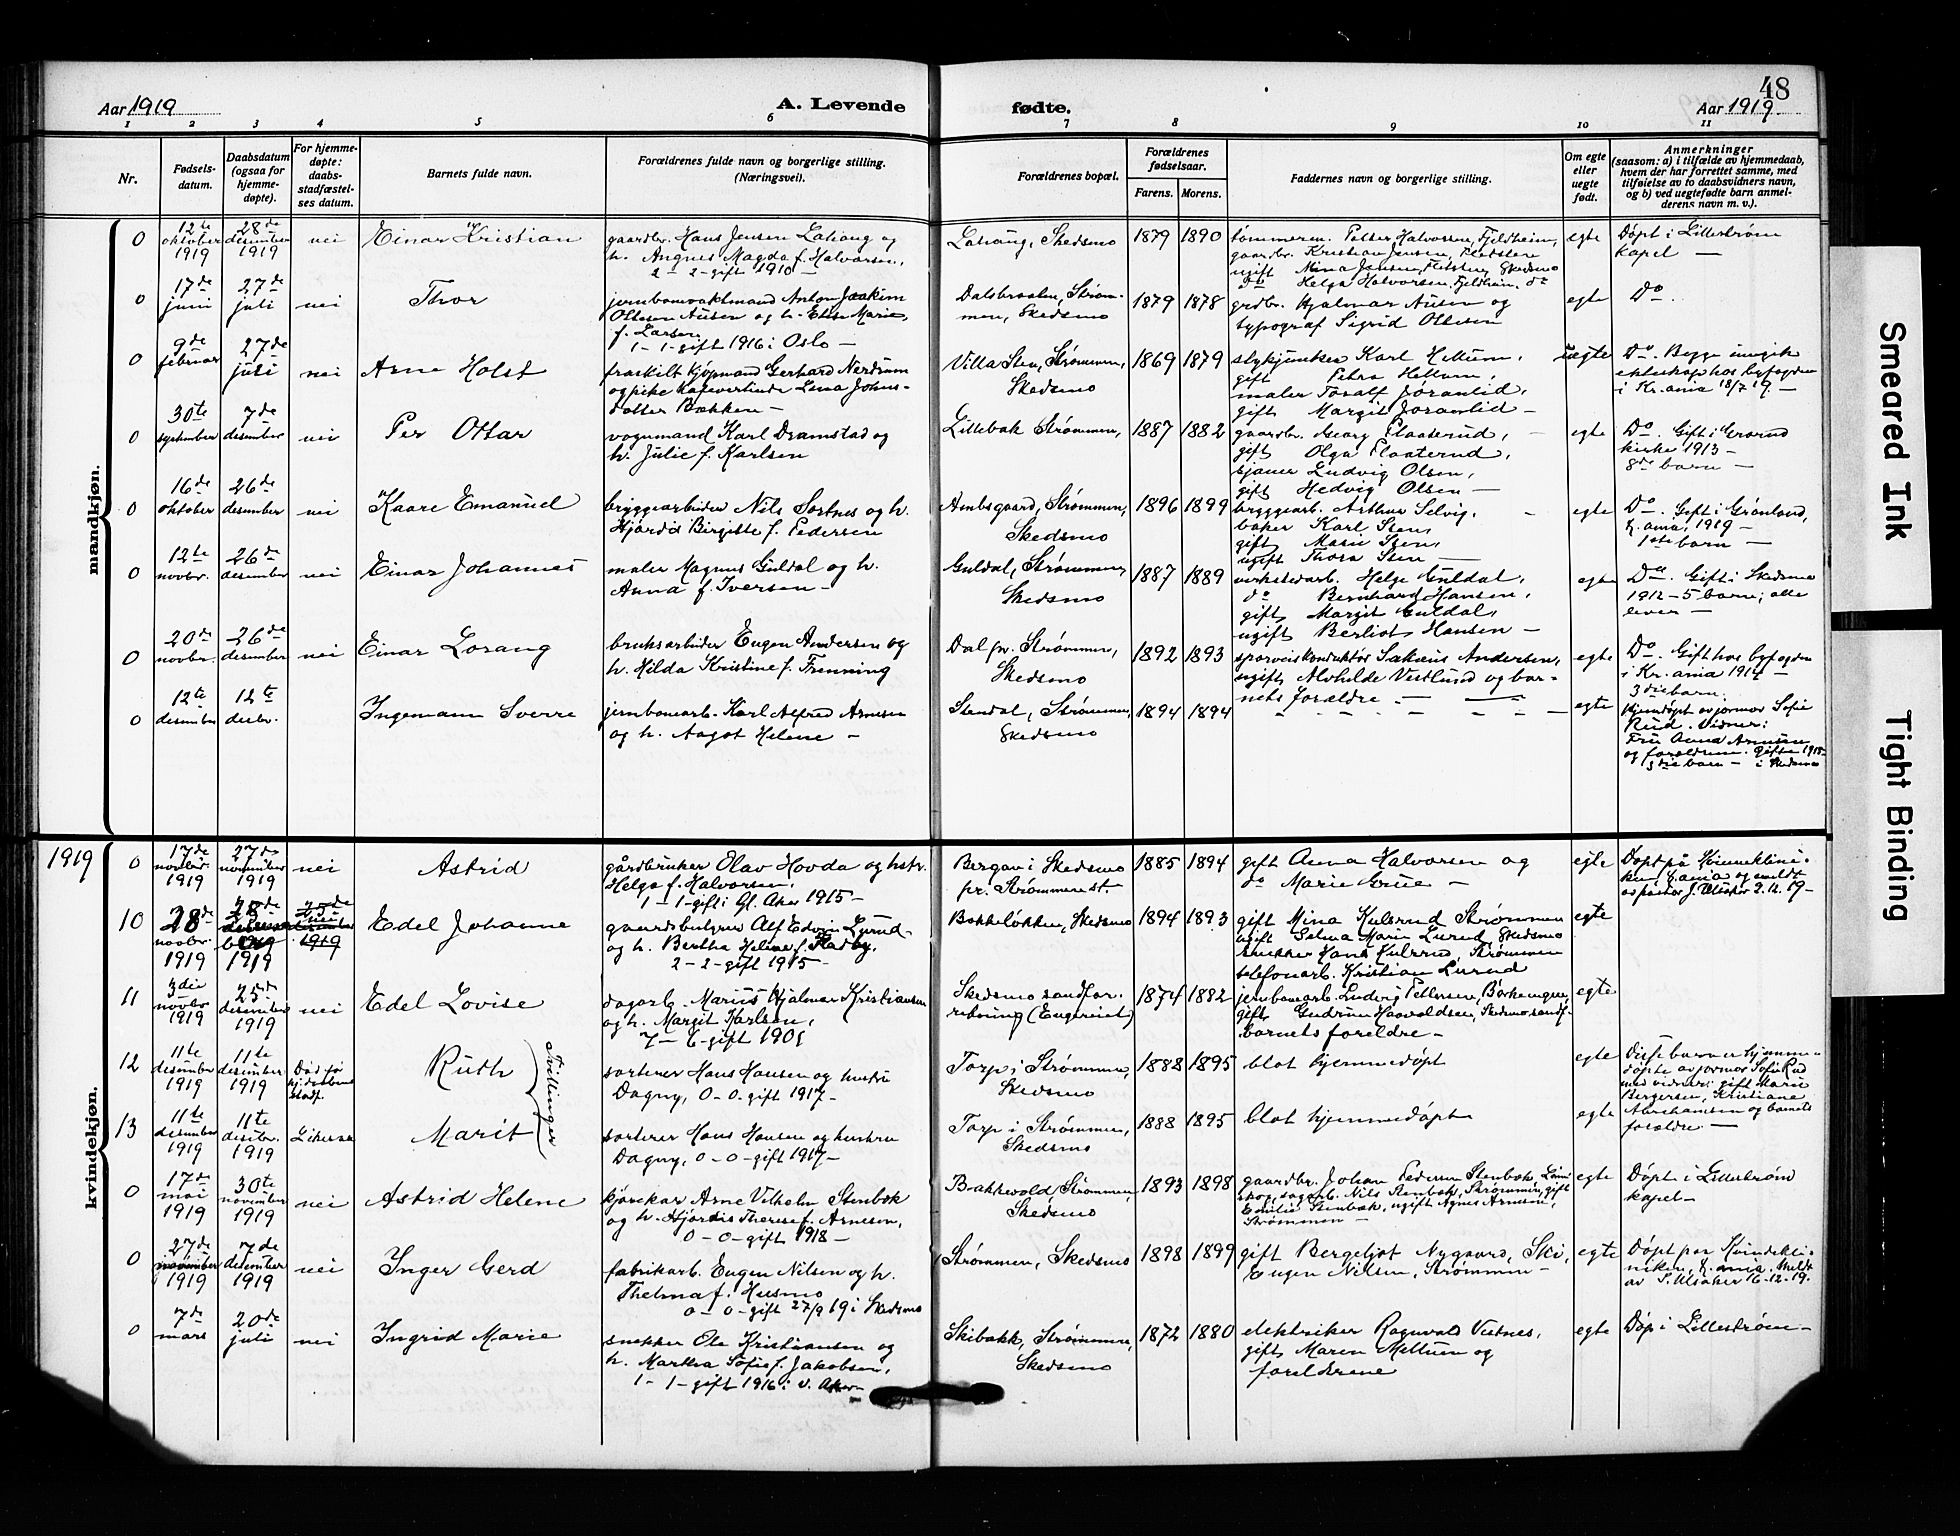 48
Aar 1919
A. Levende
fødte.
Aar 1919
1 2 3 4 5 6 7 8 9 10 11
Nr.
Fødsels-
datum.
Daabsdatum
(ogsaa for
hjemme-
døpte).
For hjemme-
døpte:
daabs-
stadfæstel-
ses datum.
Barnets fulde navn.
Forældrenes fulde navn og borgerlige stilling.
(Næringsvei).
Forældrenes bopæl.
Forældrenes
fødselsaar.
Farens. Morens.
Faddernes navn og borgerlige stilling.
Om egte
eller
uegte
født.
Anmerkninger
(saasom: a) i tilfælde av hjemmedaab,
hvem der har forrettet samme, med
tilføielse av to daabsvidners navn,
og b) ved uegtefødte barn anmel-
derens navn m. v.).
mandkjøn.
0
12te
oktober
1919
28de
desember
1919
nei
Einar Kristian
gaardbr. Hans Jensen Lahaug og
h. Angnes Magda f. Halvorsen,
2 - 2 - gift 1910 -
Lahaug, Skedsmo
1879 1890
tømmerm. Petter Halvorsen, Fjeldheim,
gaardbr. Kristian Jensen,
ugift Mina Jensen, Skedsmo
do Helga Halvorsen, Fjeldheim, do
egte
Døpt i Lillestrøm
kapel -
0
17de
juni
27de
juli
nei
Thor
jernbanevaktmand Anton Joakim
Ottesen Ausen og h. Elise Marie,
f. Larsen
1 - 1 - gift 1916 i Oslo -
Dalsbraaten, Strøm-
men, Skedsmo
1879 1878
grdbr. Hjalmar Ausen og
typograf Sigrid Ottesen
egte
Do.
0
9de
februar
27de
juli
nei
Arne Holst
fraskilt kjøpmand Gerhard Nerdrum
og pike kafevertinde Lena Johns-
datter Bakken -
Villa Sten, Strømmen,
Skedsmo
1869 1879
stykjunker Karl Hellum,
gift Petra Hellum,
maler Toralf Jøranlid,
gift Margit Jøranlid -
uegte
Do. Begge inngik
ekteskap hos byfogden
i Kr.ania 18/7 19. -
0
30te
september
7de
desember
nei
Per Ottar
vognmand Karl Dramstad og
h. Julie f. Karlsen
Lillebak Strømmen,
1887 1882
gaardbr. Georg Flaaterud,
gift Olga Flaaterud,
sjauer Ludvig Olsen,
gift Hedvig Olsen -
egte
Do. Gift i Grorud
kirke 1913 -
8de barn -
0
16de
oktober
26de
desember
nei
Kaare Emanuel
bryggearbeider Nils Sørtnes og h.
Hjørdis Birgitte f. Pedersen
Ambsgaard, Strømmen,
Skedsmo
1896 1899
bryggearb. Arthur Selvig,
baker Karl Sten,
gift Marie Sten,
ugift Thora Sten -
egte
Do. Gift i Grønland,
K.ania, 1919 -
1ste barn -
0
12te
novbr.
26de
desember
nei
Einar Johannes
maler Magnus Guldal og h.
Anna f. Iversen -
Guldal, Strømmen,
Skedsmo
1887 1889
verkstedarb. Helge Guldal,
do Bernhard Hansen,
gift Margit Guldal,
ugift Berliot Hansen -
egte
Do. Gift i Skedsmo
1912 - 5 barn; alle
lever -
0
20de
novbr.
26de
desember
nei
Einar Lorang
bruksarbeider Eugen Andersen og
h. Hilda Kristine f. Frenning
Dal pr. Strømmen,
Skedsmo
1892 1893
sporveiskonduktør Sakæus Andersen,
ugift Alvhilde Vestlund og bar-
nets forældre -
egte
Do. Gift hos byfogden
i Kr.ania 1914 -
3die barn.
0
12te
desember
12te
desbr.
Ingemann Sverre
jernbanearb. Karl Alfred Arnesen
og h. Aagot Helene -
Stendal, Strømmen,
Skedsmo
1894 1894
egte
Hjemdøpt av jormor Sofie
Rud. Vidner:
Fru Anna Arnesen
og forældrene. Gifte 1915
3die barn - i Skedsmo
kvindekjøn.
1919
0
17de
novbr.
1919
27de
november
1919
nei
Astrid
gårdbruker Olav Hovda og hstr.
Helga f. Halvorsen.
1 - 1 - gift i Gl. Aker 1915 -
Bergan i Skedsmo
pr. Strømmen st.
1885 1894
gift Anna Halvorsen og
do Marie Grue -
egte
Døpt på Kvinneklini-
ken K.ania og meldt
av pastor J. Ulsaker 2.12.19 -
10
28de
novbr.
1919
28de
1919
25de
desember
1919
Edel Johanne
gaardsbestyrer Alf Edvin Lurud
og h. Bertha Helene f. Hadby.
2 - 2 - gift 1915 -
Bakkeløkken, Skedsmo
1894 1893
gift Mina Kulsrud Strømmen
ugift Selma Marie Lurud, Skedsmo
snekker Hans Kulsrud, Strømmen
telefonarb. Kristian Lurud
egte
11
3die
novbr.
1919
25de
desember
1919
nei
Edel Lovise
dagarb. Marius Hjalmar Kristiansen
og h. Margit Karlsen,
7 - 6 - gift 1901
Skedsmo sandfor-
retning (Engereiet)
1874 1882
jernbanearb. Ludvig Pettersen, Bårhengen,
gift Gudrun Haavaldsen, Skedsmo sandf.
barnets foreldre -
egte
12
11te
desember
1919
11te
desember
1919
Død før
stadf.
Ruth
Tvillinger
sorterer Hans Hansen og hustru
Dagny, 0 - 0 - gift 1917 -
Torp i Strømmen,
Skedsmo
1888 1895
blot hjemmedøpt
egte
Disse barn er hjemme-
døpte av jormor Sofie Rud
med vidner: gift Marie
Bergersen, Kristiane
Abrahamsen og barnets
forældre. -
13
11te
desember
1919
11te
desbr.
1919
Likesaa
Marit
sorterer Hans Hansen og hustru
Dagny, 0 - 0 - gift 1917 -
Torp i Strømmen,
Skedsmo
1888 1895
blot hjemmedøpt
egte
0
17de
mai
1919
30te
november
1919
nei
Astrid Helene
kjørekar Arne Vilhelm Stenbæk
og h. Hjørdis Therese f. Arnesen,
0 - 0 - gift 1918 -
Bakkevold, Strømmen,
Skedsmo
1893 1898
gaardbr. Johan Pedersen Stenbæk, Løren-
skog, sagarb. Nils Stenbæk, Strømmen, gift
Emilie Stenbæk, ugift Agnes Arnesen,
Strømmen -
egte
Døpt i Lillestrøm
kapel -
0
27de
november
1919
7de
desember
1919
nei
Inger Gerd
fabrikarb. Eugen Nilsen og h.
Thelma f. Husmo
0 - 0 - gift 27/9 19 i Skedsmo
Strømmen, Skedsmo
1898 1899
gift Bergeljot Nygaard, Ski,
Eugen Nilsen, Strømmen -
egte
Døpt paa Kvindekli-
niken, K.ania. Meldt
av J. Ulsaker 16-12-19.
0
7de
mars
20de
juli
nei
Ingrid Marie
snekker Ole Kristiansen og
h. Martha Sofie f. Jakobsen,
1 - 1 - gift 1916 i V. Aker -
Skibakk, Strømmen,
Skedsmo
1872 1880
elektriker Ragnvald Vestnes,
gift Maren Mellum og
foreldrene
egte
Døpt i Lillestrøm -
Smeared Ink
Tight Binding